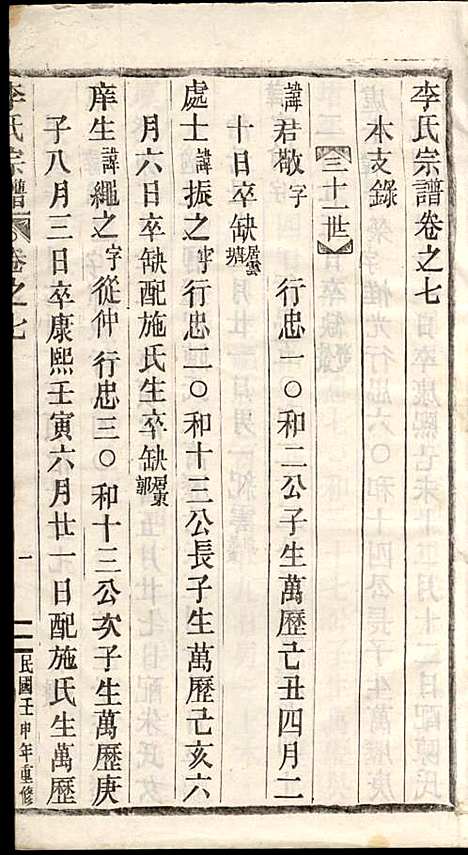 李氏宗譜卷之七
本支錄
三十一世
諱君敬字 行忠一〇和二公子生萬歷己丑四月二
十日卒缺
處士諱振之字行忠二〇和十三公長子生萬歷己亥六
月六日卒缺配施氏生卒缺
庠生諱繩之字從仲行忠三〇和十三公次子生萬歷庚
子八月三日卒康熙壬寅六月廿一日配施氏生萬歷
李氏宗譜 卷之七 一 民國壬申年重修